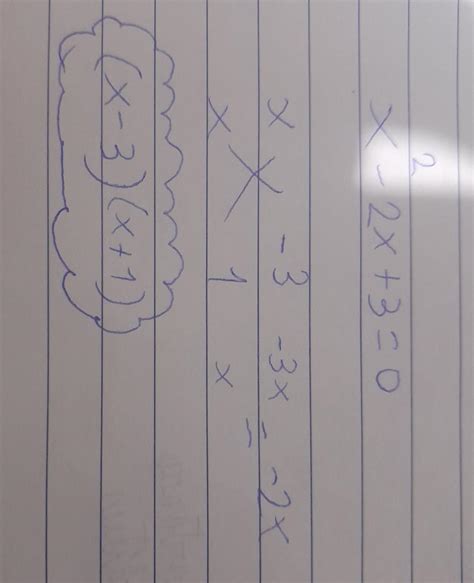 x² - 2x + 3 = 0
x -3 -3x = -2x
x 1 x
(x - 3) (x + 1)